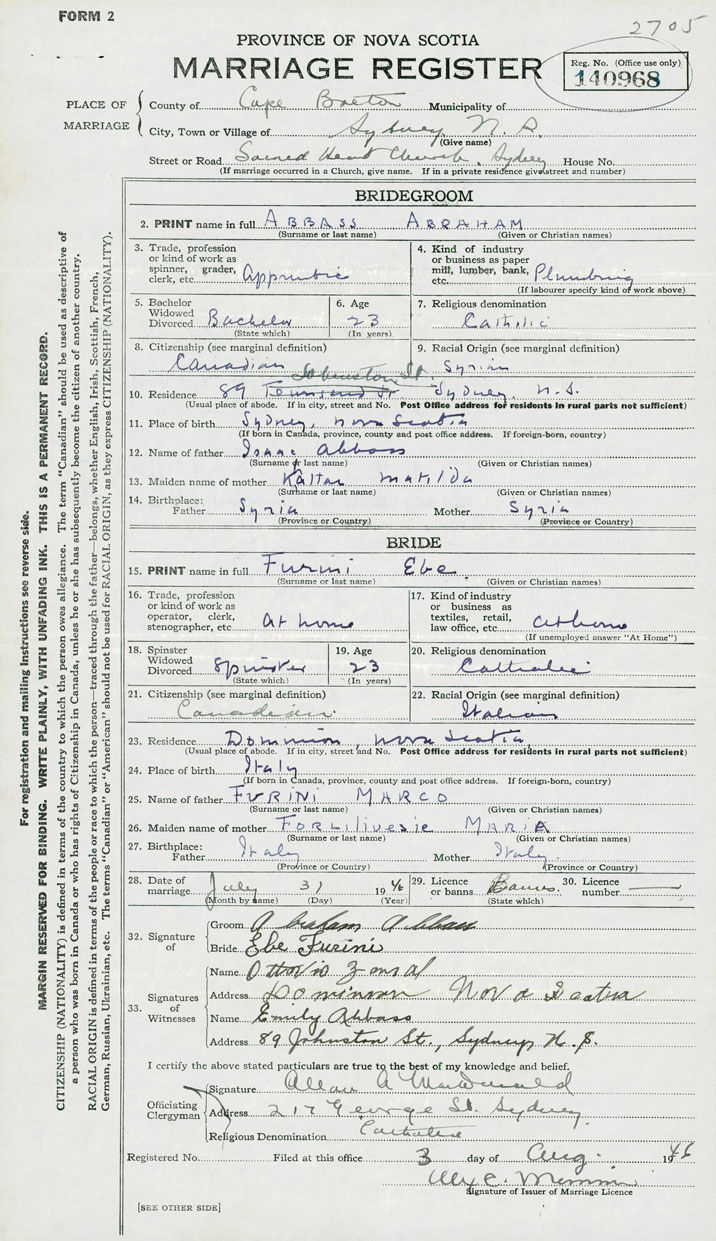 FORM 2
2705
PROVINCE OF NOVA SCOTIA
MARRIAGE REGISTER
Reg. No. (Office use only)
140968
PLACE OF MARRIAGE
County of Cape Breton Municipality of
City, Town or Village of Sydney N.S.
(Give name)
Street or Road Sacred Heart Church, Sydney House No.
(If marriage occurred in a Church, give name. If in a private residence give street and number)
BRIDEGROOM
2. PRINT name in full ABBASS ABRAHAM
(Surname or last name) (Given or Christian names)
3. Trade, profession or kind of work as spinner, grader, clerk, etc. Apprentice
4. Kind of industry or business as paper mill, lumber, bank, etc. Plumbing
(If labourer specify kind of work above)
5. Bachelor Widowed Divorced Bachelor
(State which)
6. Age 23
(In years)
7. Religious denomination
Catholic
8. Citizenship (see marginal definition)
Canadian
9. Racial Origin (see marginal definition)
Syrian
Johnston St
10. Residence 89 Townsend St Sydney, N.S.
(Usual place of abode. If in city, street and No. Post Office address for residents in rural parts not sufficient)
11. Place of birth Sydney, Nova Scotia
(If born in Canada, province, county and post office address. If foreign-born, country)
12. Name of father Isaac Abbass
(Surname or last name) (Given or Christian names)
13. Maiden name of mother Kaltar Matilda
(Surname or last name) (Given or Christian names)
14. Birthplace: Father Syria Mother Syria
(Province or Country) (Province or Country)
BRIDE
15. PRINT name in full Furini Ebe
(Surname or last name) (Given or Christian names)
16. Trade, profession or kind of work as operator, clerk, stenographer, etc. At home
17. Kind of industry or business as textiles, retail, law office, etc. at home
(If unemployed answer "At Home")
18. Spinster Widowed Divorced Spinster
(State which)
19. Age 23
(In years)
20. Religious denomination
Catholic
21. Citizenship (see marginal definition)
Canadian
22. Racial Origin (see marginal definition)
Italian
23. Residence Dominion, Nova Scotia
(Usual place of abode. If in city, street and No. Post Office address for residents in rural parts not sufficient)
24. Place of birth Italy
(If born in Canada, province, county and post office address. If foreign-born, country)
25. Name of father FURINI MARCO
(Surname or last name) (Given or Christian names)
26. Maiden name of mother FORLILIVESIE MARIA
(Surname or last name) (Given or Christian names)
27. Birthplace: Father Italy Mother Italy
(Province or Country) (Province or Country)
28. Date of marriage July 31 1946
(Month by name) (Day) (Year)
29. Licence or banns Banns
(State which)
30. Licence number
32. Signature of
Groom Abraham Abbass
Bride Ebe Furini
33. Signatures of Witnesses
Name Ottavio
Address Dominion Nova Scotia
Name Emily Abbass
Address 89 Johnston St., Sydney, N.S.
I certify the above stated particulars are true to the best of my knowledge and belief.
Officiating Clergyman
Signature Allan A MacDonald
Address 217 George St. Sydney
Religious Denomination Catholic
Registered No. Filed at this office 3 day of Aug. 1946
Signature of Issuer of Marriage Licence
[SEE OTHER SIDE]
For registration and mailing instructions see reverse side.
MARGIN RESERVED FOR BINDING. WRITE PLAINLY, WITH UNFADING INK. THIS IS A PERMANENT RECORD.
CITIZENSHIP (NATIONALITY) is defined in terms of the country to which the person owes allegiance. The term "Canadian" should be used as descriptive of
a person who was born in Canada or who has rights of Citizenship in Canada, unless he or she has subsequently become the citizen of another country.
RACIAL ORIGIN is defined in terms of the people or race to which the person—traced through the father—belongs, whether English, Irish, Scottish, French,
German, Russian, Ukrainian, etc. The terms "Canadian" or "American" should not be used for RACIAL ORIGIN, as they express CITIZENSHIP (NATIONALITY).